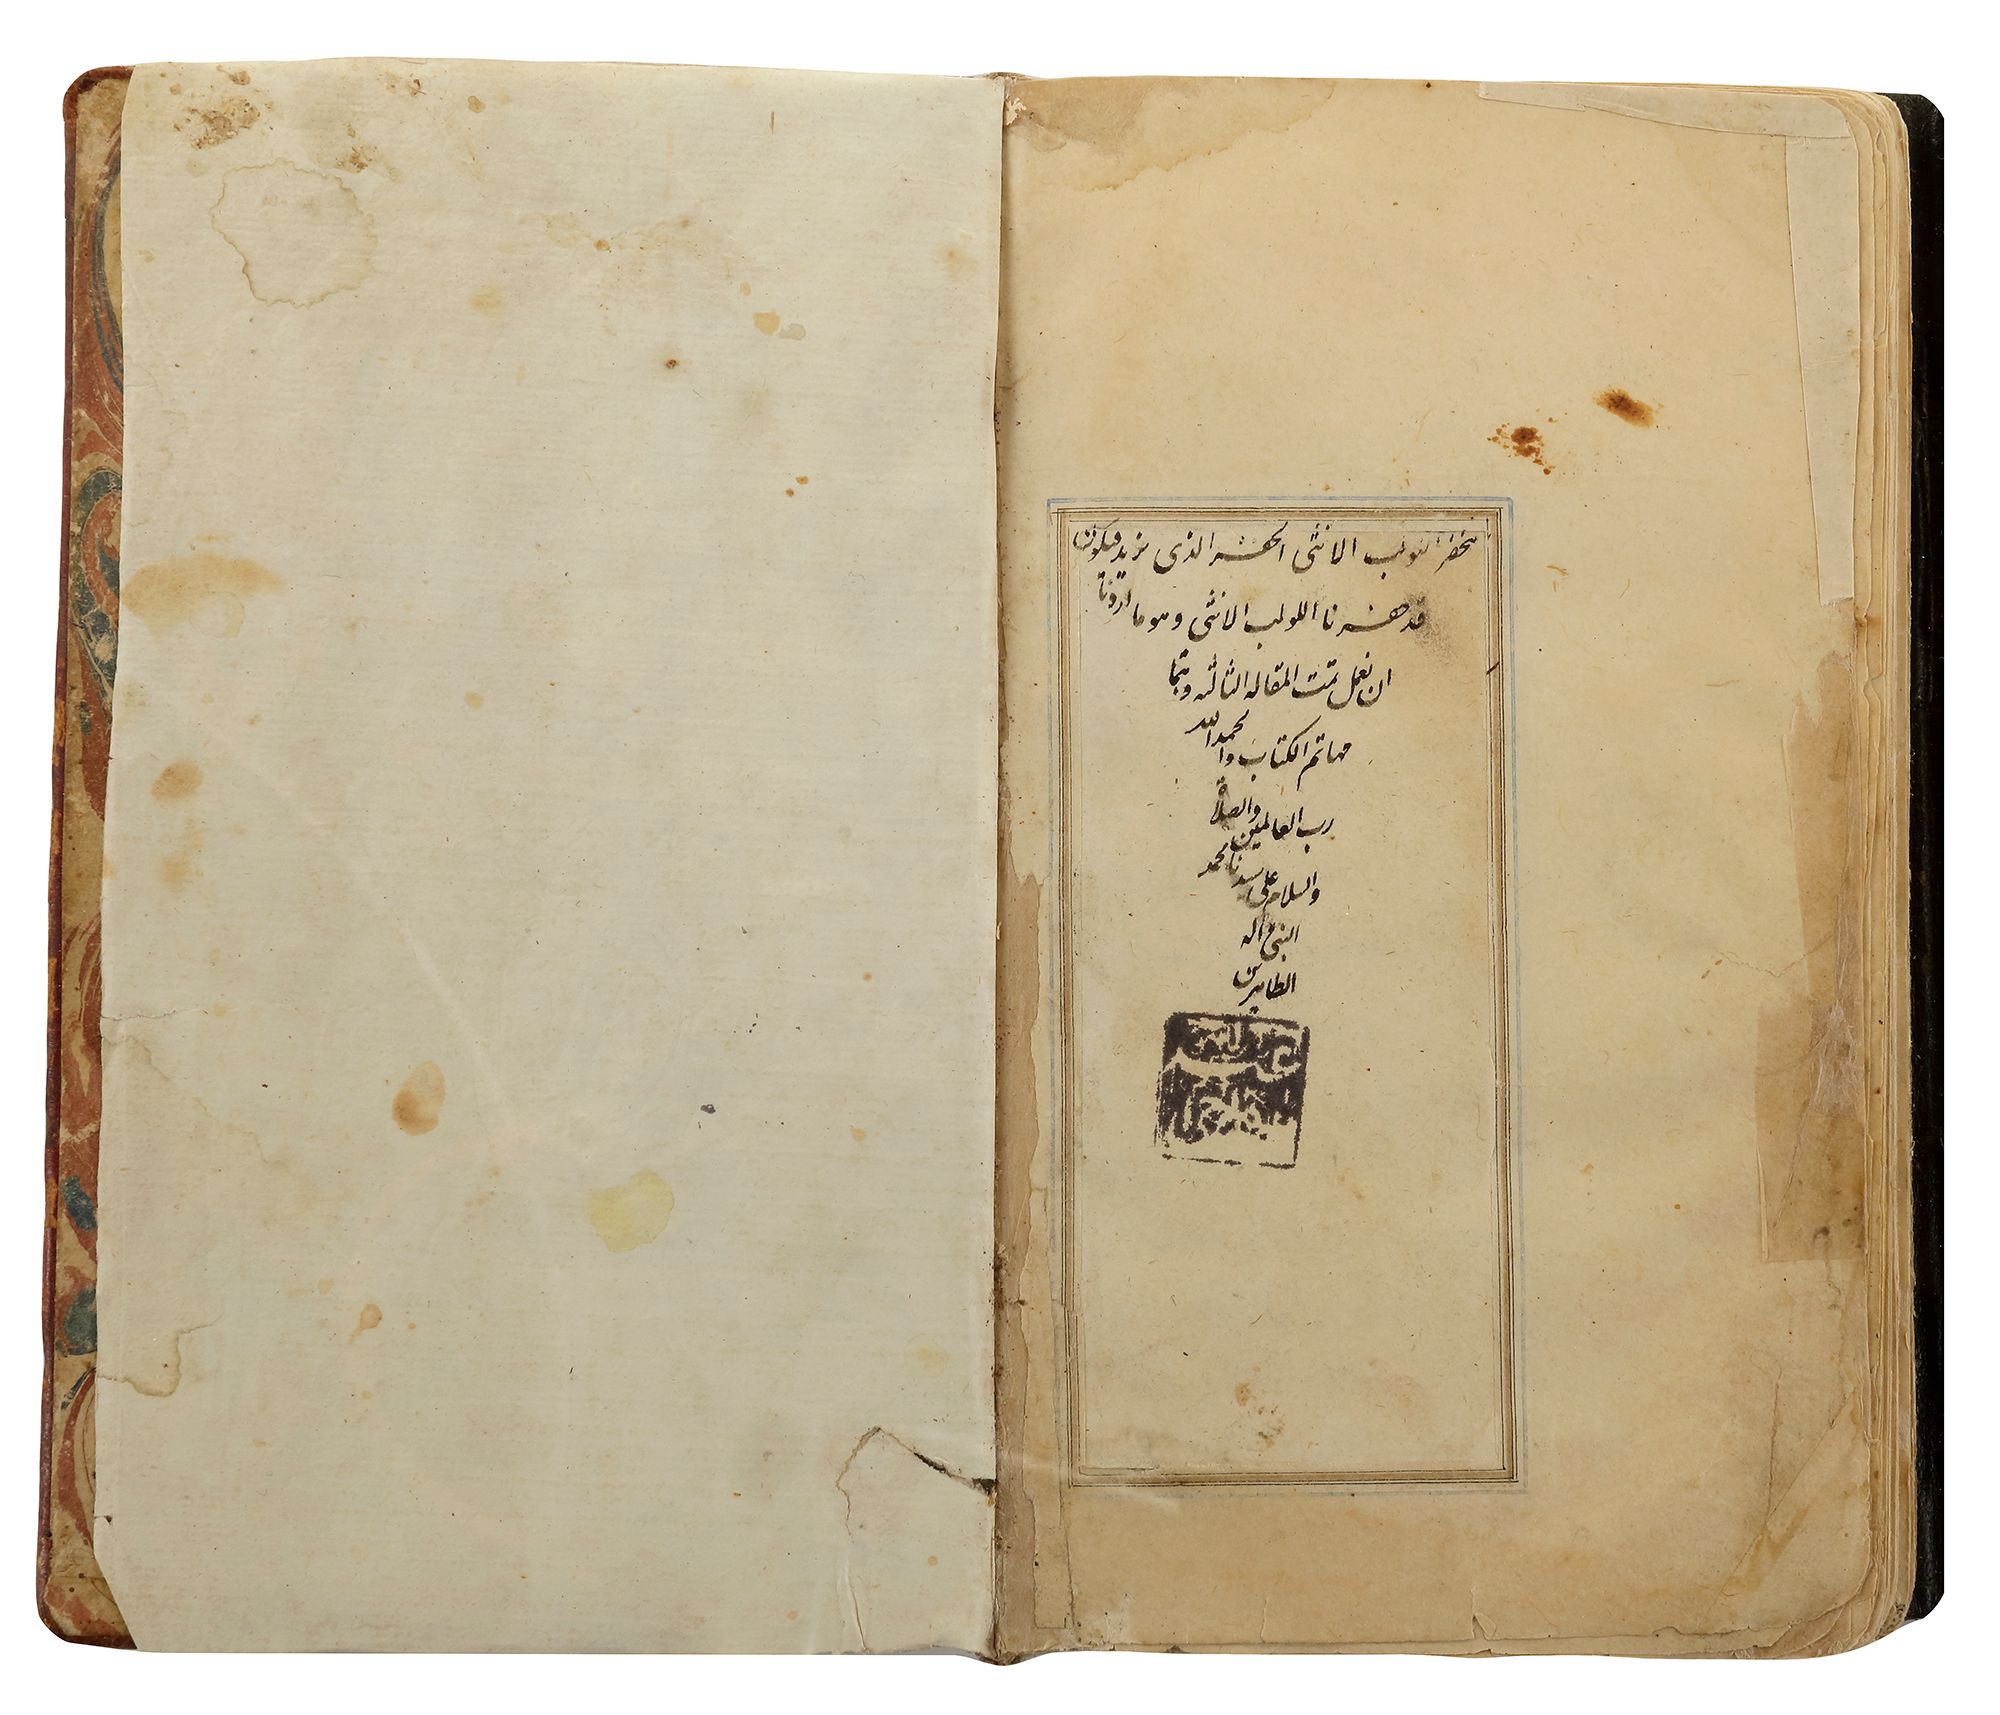 نحفر اللولب الانثى الحفر الذى نريد فيكون
قد حفرنا اللولب الانثى وهو ما اردنا
ان نعمل تمت المقاله الثالثه وبتما
مها تم الكتاب والحمد الله
رب العالمين والصلاة
والسلام على سيدنا محمد
النبى و اله
الطاهرين